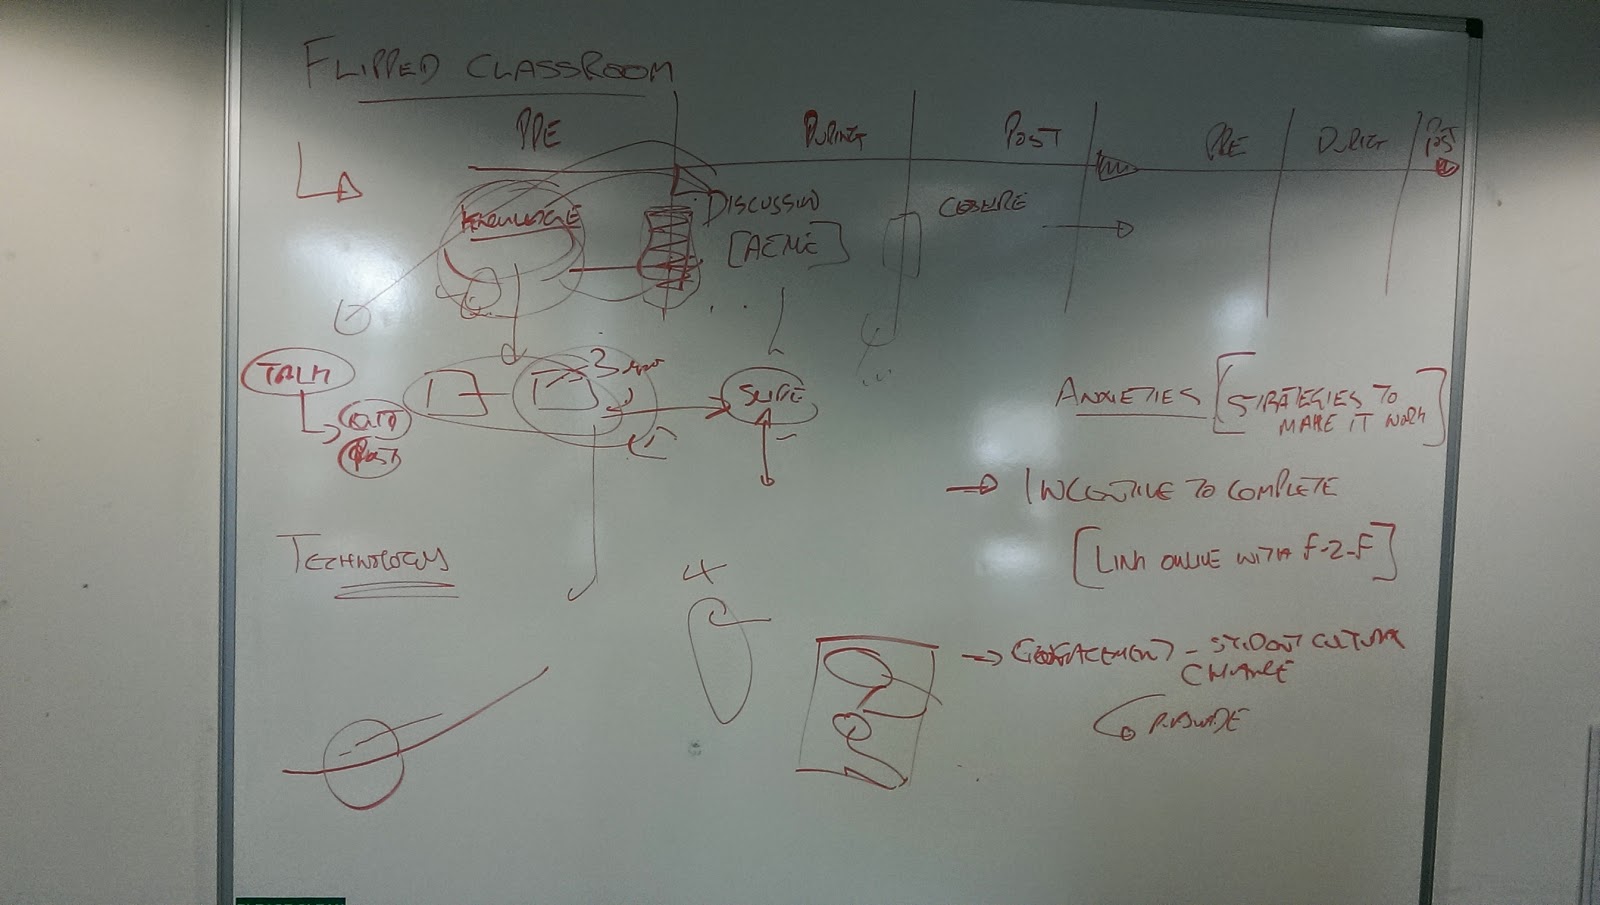 FLIPPED CLASSROOM
PRE DURING POST PRE DURING POST
KNOWLEDGE
DISCUSSION
[ACME]
CLOSURE
3
TALK
POST
TECHNOLOGY
4
ANXIETIES [STRATEGIES TO
MAKE IT WORK]
INCENTIVE TO COMPLETE
[LINK ONLINE WITH F-2-F]
ENGAGEMENT - STUDENT CULTURE
CHANGE
PERSUADE